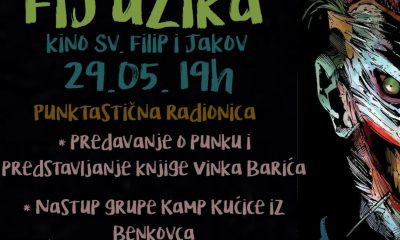 FIJUZIKA
KINO SV. FILIP I JAKOV
29.05. 19h
PUNKTASTIČNA RADIONICA
* PREDAVANJE O PUNKU I
PREDSTAVLJANJE KNJIGE VINKA BARIĆA
* NASTUP GRUPE KAMP KUĆICE IZ
BENKOVCA